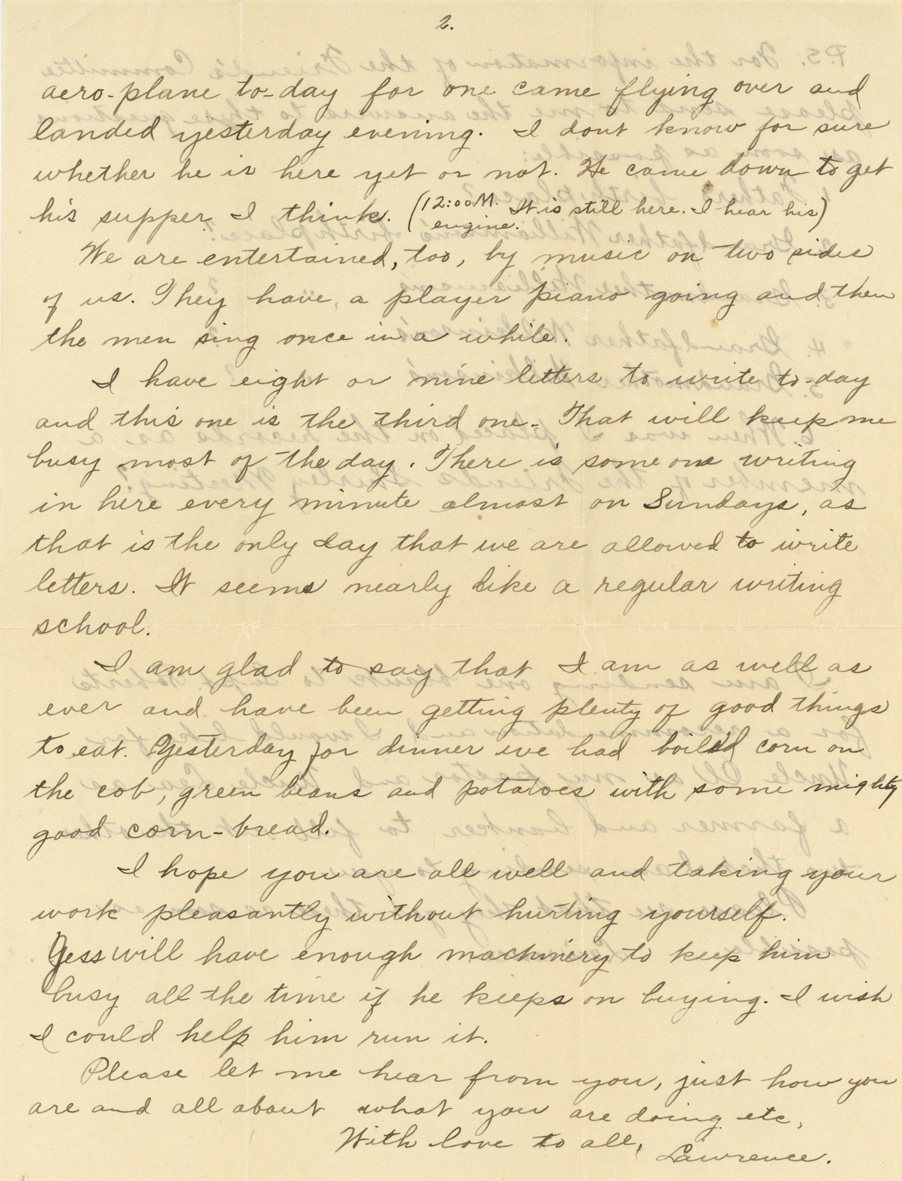 2.
aero-plane to-day for one came flying over and
landed yesterday evening. I dont know for sure
whether he is here yet or not. He came down to get
his supper I think. (12:00 M. It is still here. I hear his)
engine.
We are entertained, too, by music on two sides
of us. They have a player piano going and then
the men sing once in a while.
I have eight or nine letters to write to-day
and this one is the third one. That will keep me
busy most of the day. There is some one writing
in here every minute almost on Sundays, as
that is the only day that we are allowed to write
letters. It seems nearly like a regular writing
school.
I am glad to say that I am as well as
ever and have been getting plenty of good things
to eat. Yesterday for dinner we had boil'd corn on
the cob, green beans and potatoes with some mighty
good corn-bread.
I hope you are all well and taking your
work pleasantly without hurting yourself.
Jess will have enough machinery to keep him
busy all the time if he keeps on buying. I wish
I could help him run it.
Please let me hear from you, just how you
are and all about what you are doing etc,
With love to all, Lawrence.